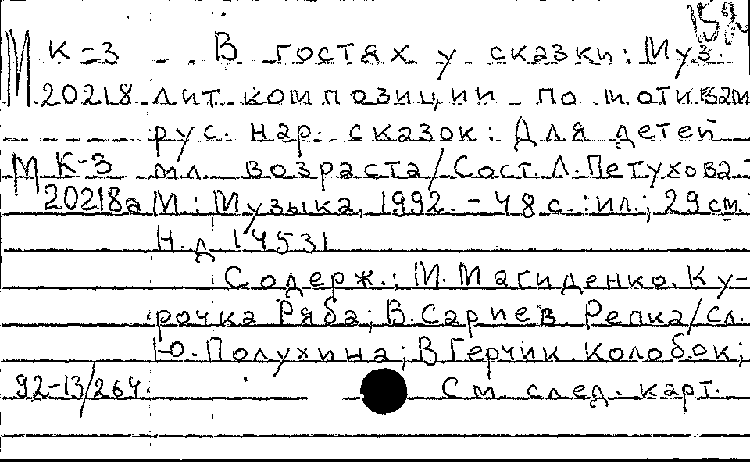 М К-3 В гостях у сказки: Муз.
20218 лит композиции по мотивам
рус. нар. сказок: Для детей
М К-3 мл. возраста/Сост. Л. Петухова-
20218а М.: Музыка, 1992. - 48 с.: ил.; 29 см.
Н.д 14531
Содерж.: М. Магиденко. Ку-
рочка Ряба; В. Сариев Репка/сл.
Ю. Полухина; В Герчик Колобок;
92-13/264. См след. карт.